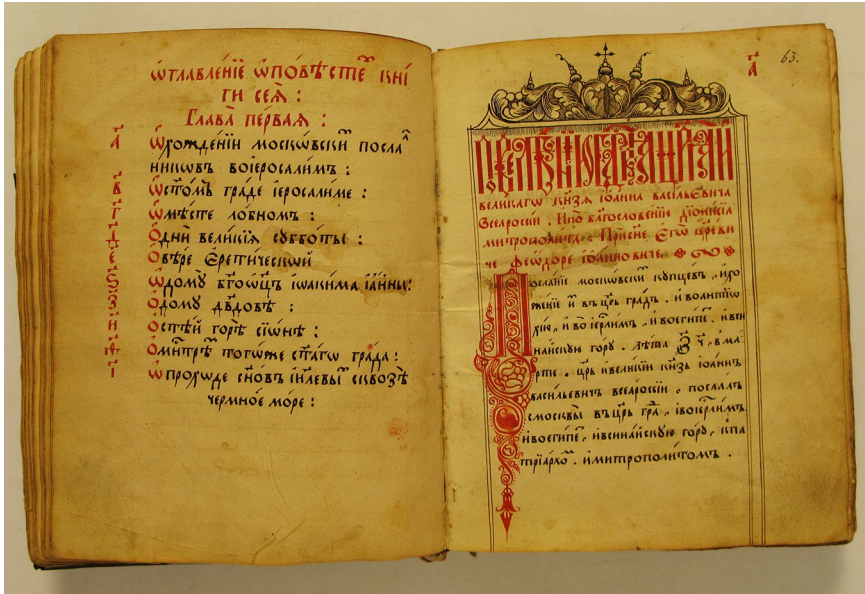 ѡтлавле́нїе ѡпо́вѣсте кні́
ги сеѧ̀ :
Глава̀ пе́рваѧ :
а҃ ѡ҆хожде́нїи москѡ́вски посла
никѡвъ воіерⷭ҇осалимъ :
в҃ ѡ҆сто́мъ гра́де іеросалиме :
г҃ ѡ҆мѣ́сте ло́бномъ :
д҃ Ѻ҆дни̑ вели́кїѧ суббо́ты :
є҃ Ѻ҆вѣ́ре Єрети́ческѡй
ѕ҃ ѡ҆дому̀ бг҃оѡц҃ъ іѡакима іа҆́нны :
з҃ Ѻ҆́дому дв҃дове :
и҃ Ѻ҆стѣ́й горѣ̀ сїѡ́не :
ѳ҃ Ѻ҆митрⷭ҇ѣ того́же ст҃а́гѡ гра́да :
і҃ ѡ҆прохо́де сн҃о́въ і҆и҃левы сквозѣ̀
чермно́е мо́ре :
а҃ 63.
вели́кагѡ кнѧ́зѧ іѡа́нна васи́льЄвича
Всеѧросси́и . И҆по бл҃гослове́нїи дїони́сїа
митрополи́та . При́сне Єгѡ̀ цр҃е́ви
че ѳеѡ́доре іѡа́нновиче .
Посла́нїе моско́вски ку́пцевъ , и҆хо
жде́нїе и҆ въ цр҃ь гра́дъ , и҆во а҆нтиѡ
хі́ю , и҆во і҆ер҃ли́мъ , и҆воеги́пе , и҆вси
на́йскую го́ру . лѣ́та в ма́
рте . цр҃ь и҆вели́кїи кнѧ́зь іѡа́ннъ
васи́льевичъ всеѧросси́и , посла́лъ
смосквы̀ въ цр҃ь гра , и҆воі҆ер҃ли́мъ
и҆воеги́пе , и҆всина́йскую го́ру , кпа
трїа́рхо , и҆митрополи́томъ .